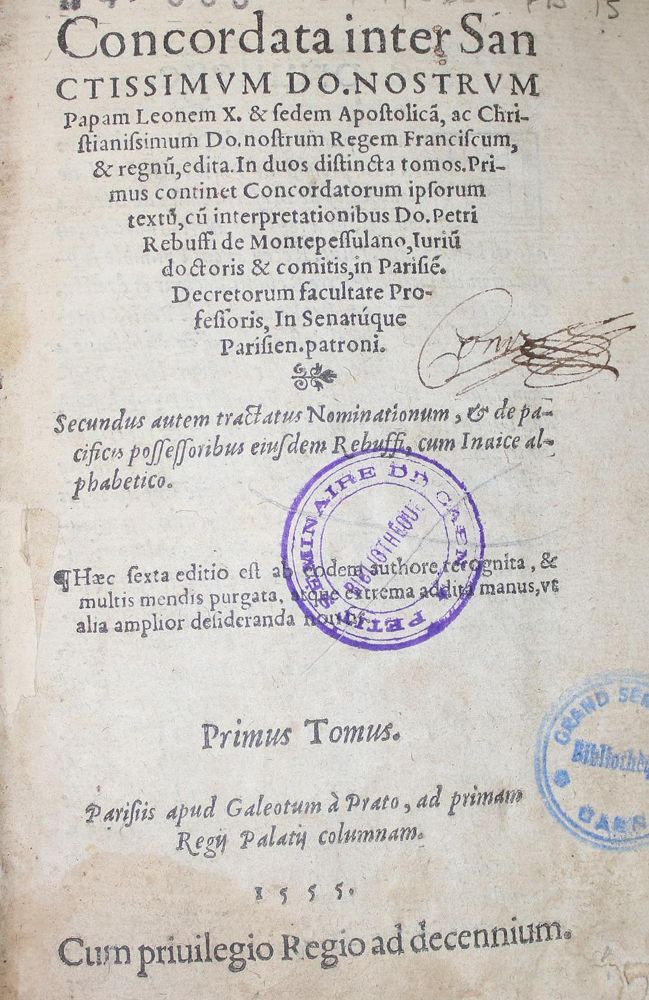 Concordata inter San
CTISSIMVM DO. NOSTRVM
Papam Leonem X. & sedem Apostolicã, ac Chri-
stianissimum Do. nostrum Regem Franciscum,
& regnũ, edita. In duos distincta tomos. Pri-
mus continet Concordatorum ipsorum
textũ, cũ interpretationibus Do. Petri
Rebuffi de Montepessulano, Iuriũ
doctoris & comitis, in Parisiẽ.
Decretorum facultate Pro-
fessoris, In Senatúque
Parisien. patroni.
Secundus autem tractatus Nominationum, & de pa-
cificis possessoribus eiusdem Rebuffi, cum Indice al-
phabetico.
PETIT SEMINAIRE DE CAEN
BIBLIOTHEQUE
¶Hæc sexta editio est ab eodem authore recognita, &
multis mendis purgata, atque extrema addita manus, vt
alia amplior desideranda non sit.
GRAND SEM
Bibliothèq
CAEN
Primus Tomus.
Parisiis apud Galeotum à Prato, ad primam
Regij Palatij columnam.
1555.
Cum priuilegio Regio ad decennium.